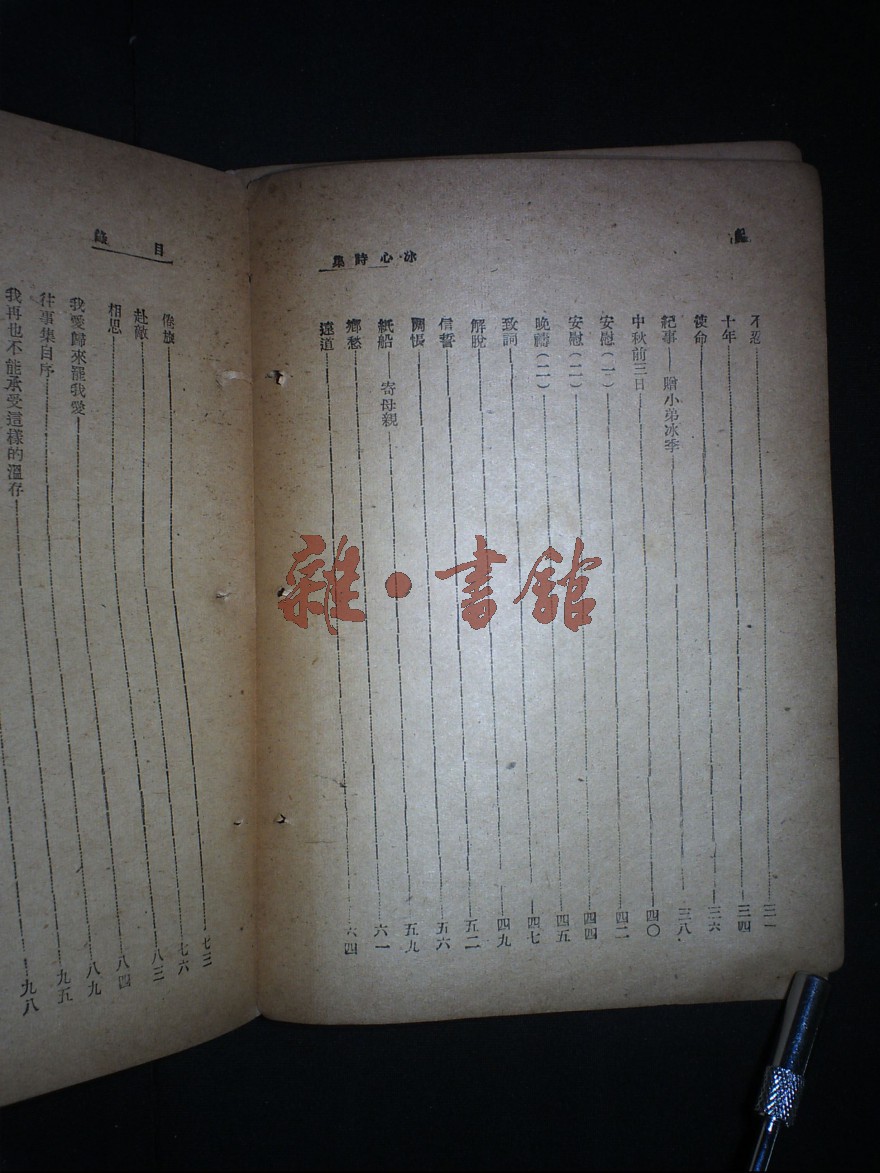 冰心詩集
不忍 三一
十年 三四
使命 三六
紀事——贈小弟冰季 三八
中秋前三日 四〇
安慰(一) 四二
安慰(二) 四四
晚禱(二) 四五
致詞 四七
解脫 四九
信誓 五二
悵 五六
紙船——寄母親 五九
鄉愁 六一
遠道 六四
目錄
倦旅 七三
赴敵 七六
相思 八三
我愛歸來罷我愛 八四
往事集自序 八九
我再也不能承受這樣的溫存 九五
九八
雜·書館